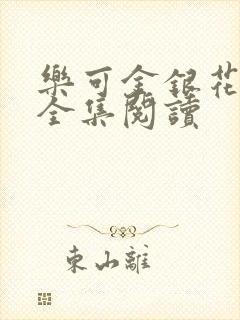 樂可金銀花
全集閱讀
東山離